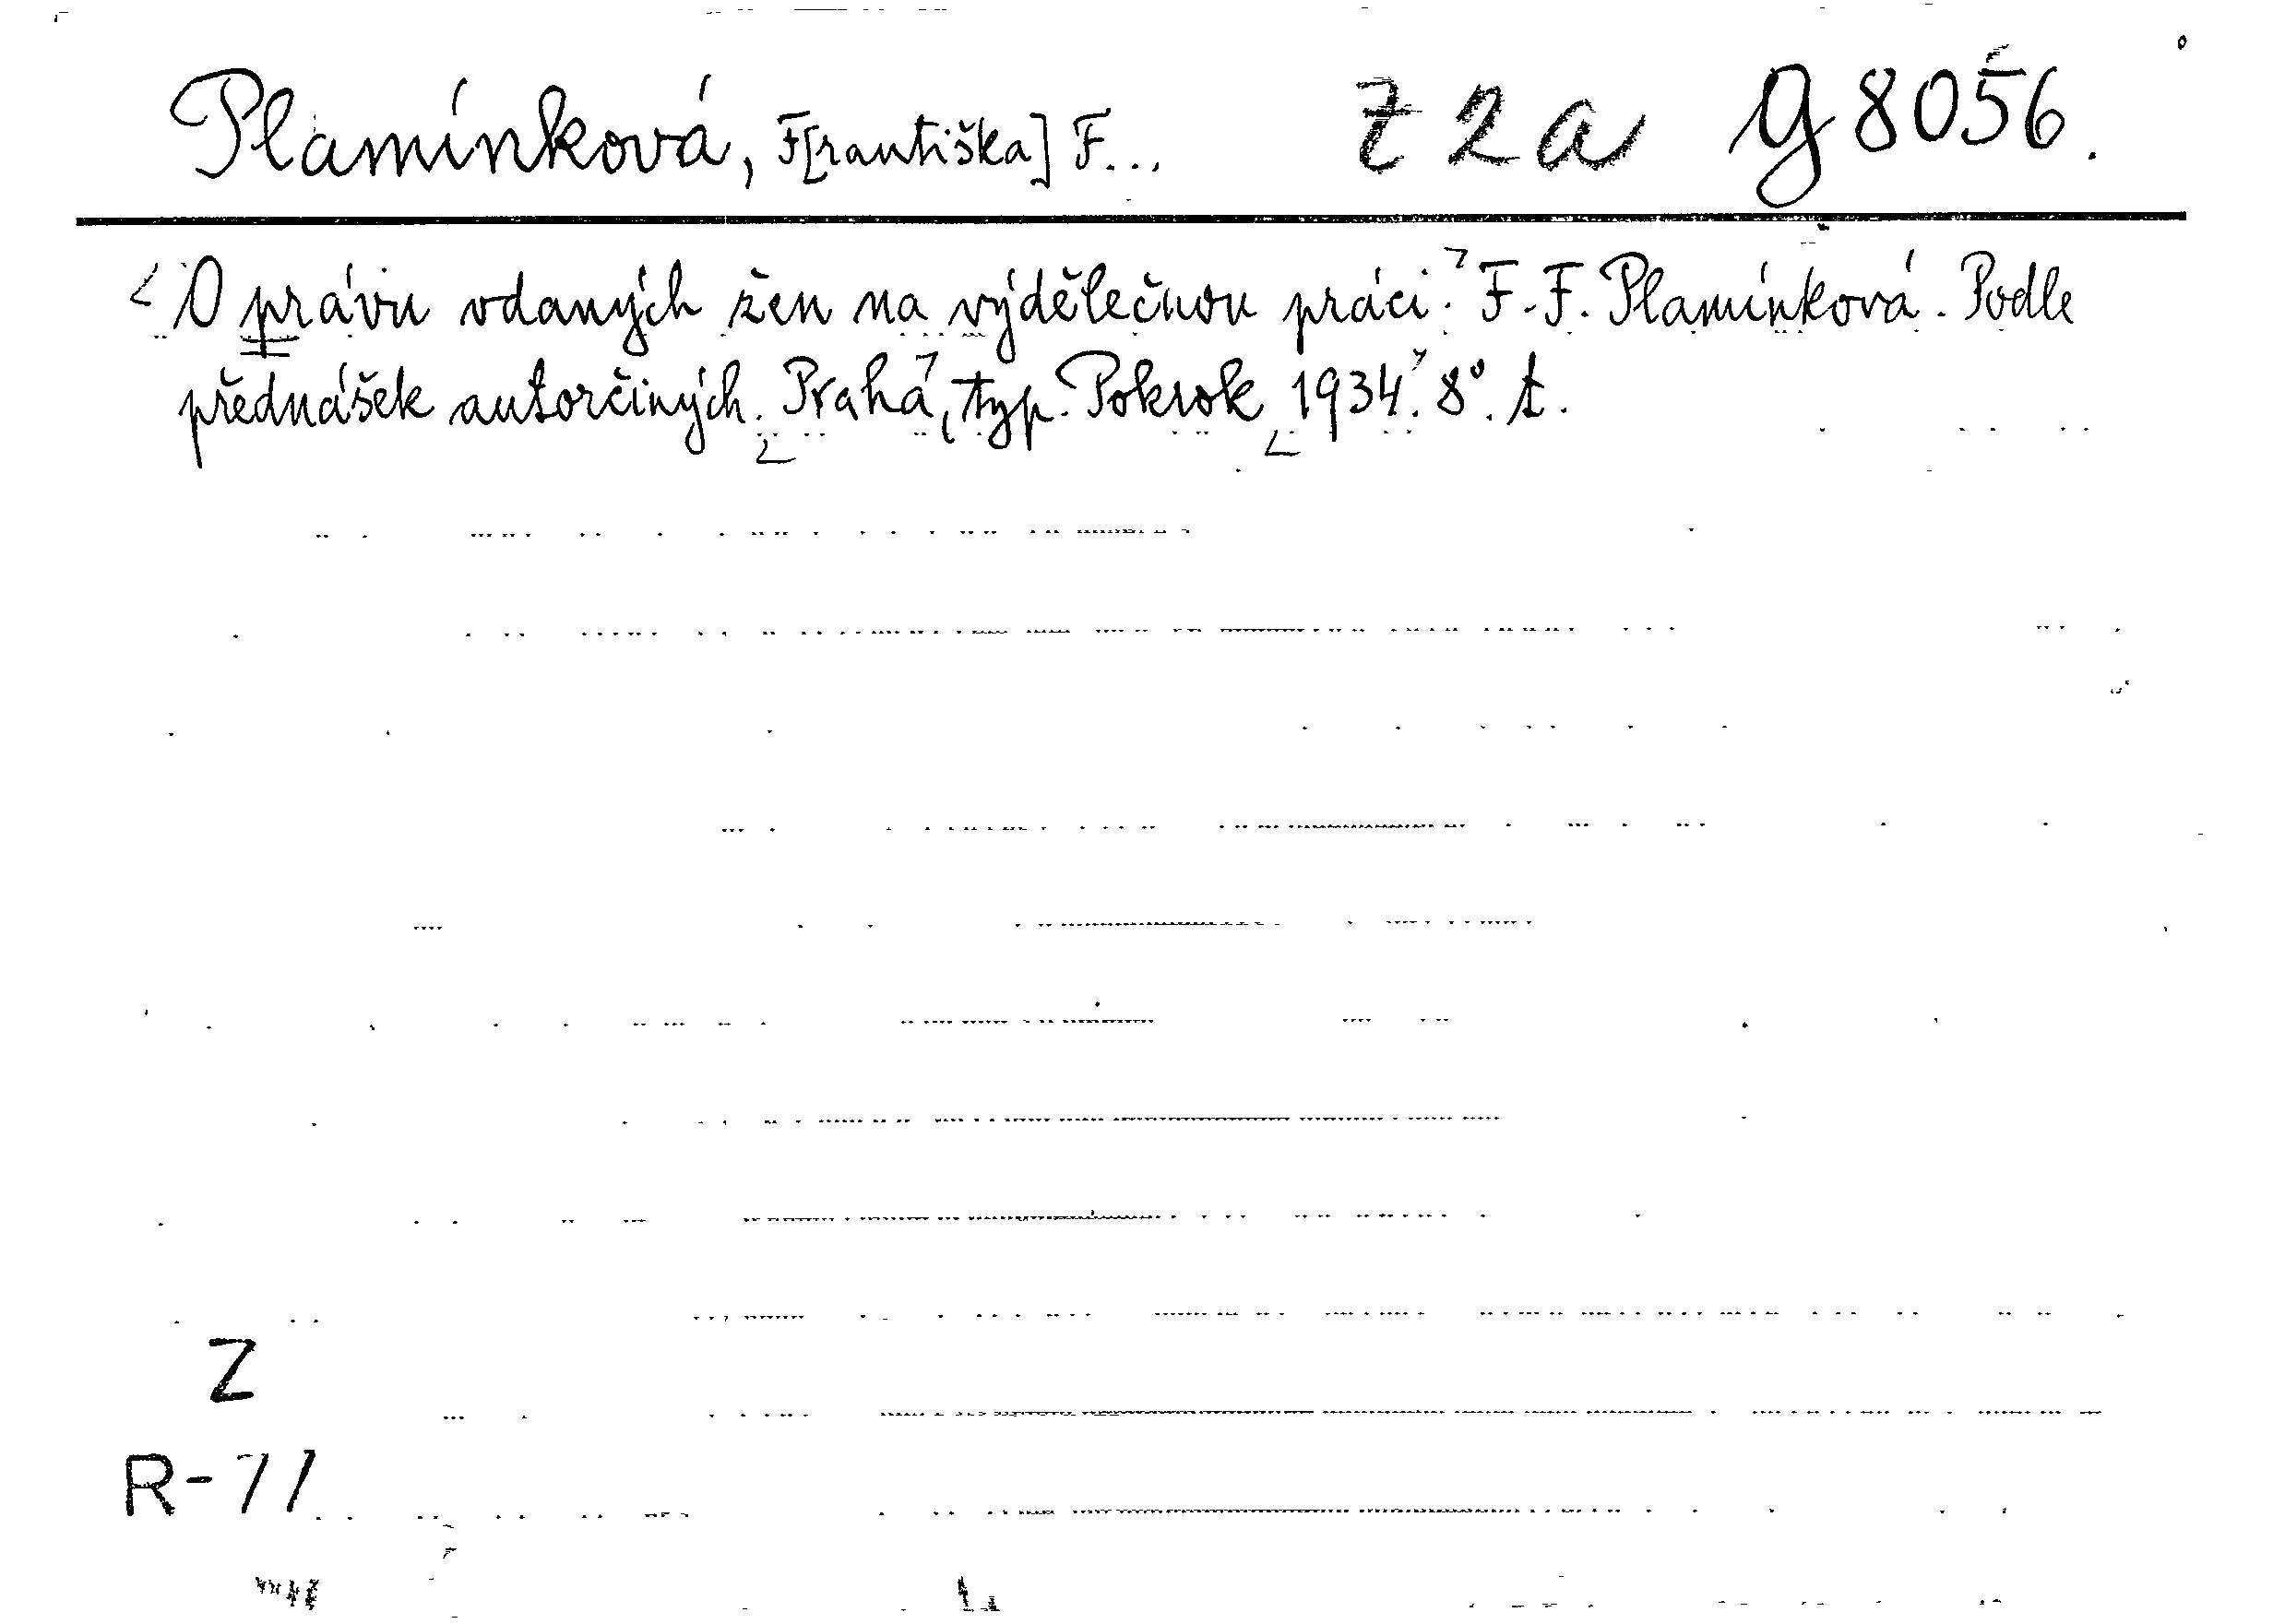 Plamínková, F[rantiška] F... Z 2 a g 8056.
O právu vdaných žen na výdělečnou práci. F. F. Plamínková. Podle
přednášek autorčiných. Praha, typ. Pokrok 1934. 8°. t.
Z
R-71